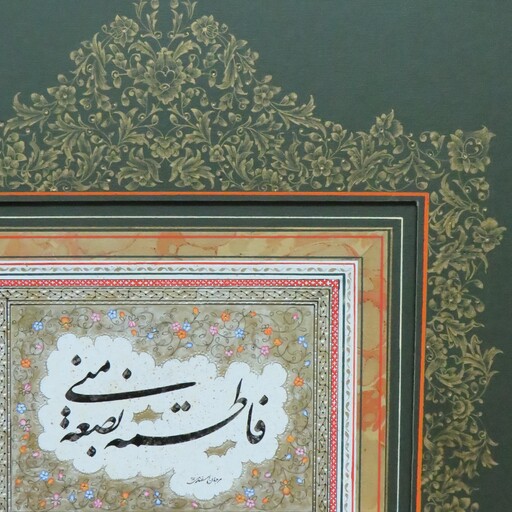 فاطمه بضعة مني